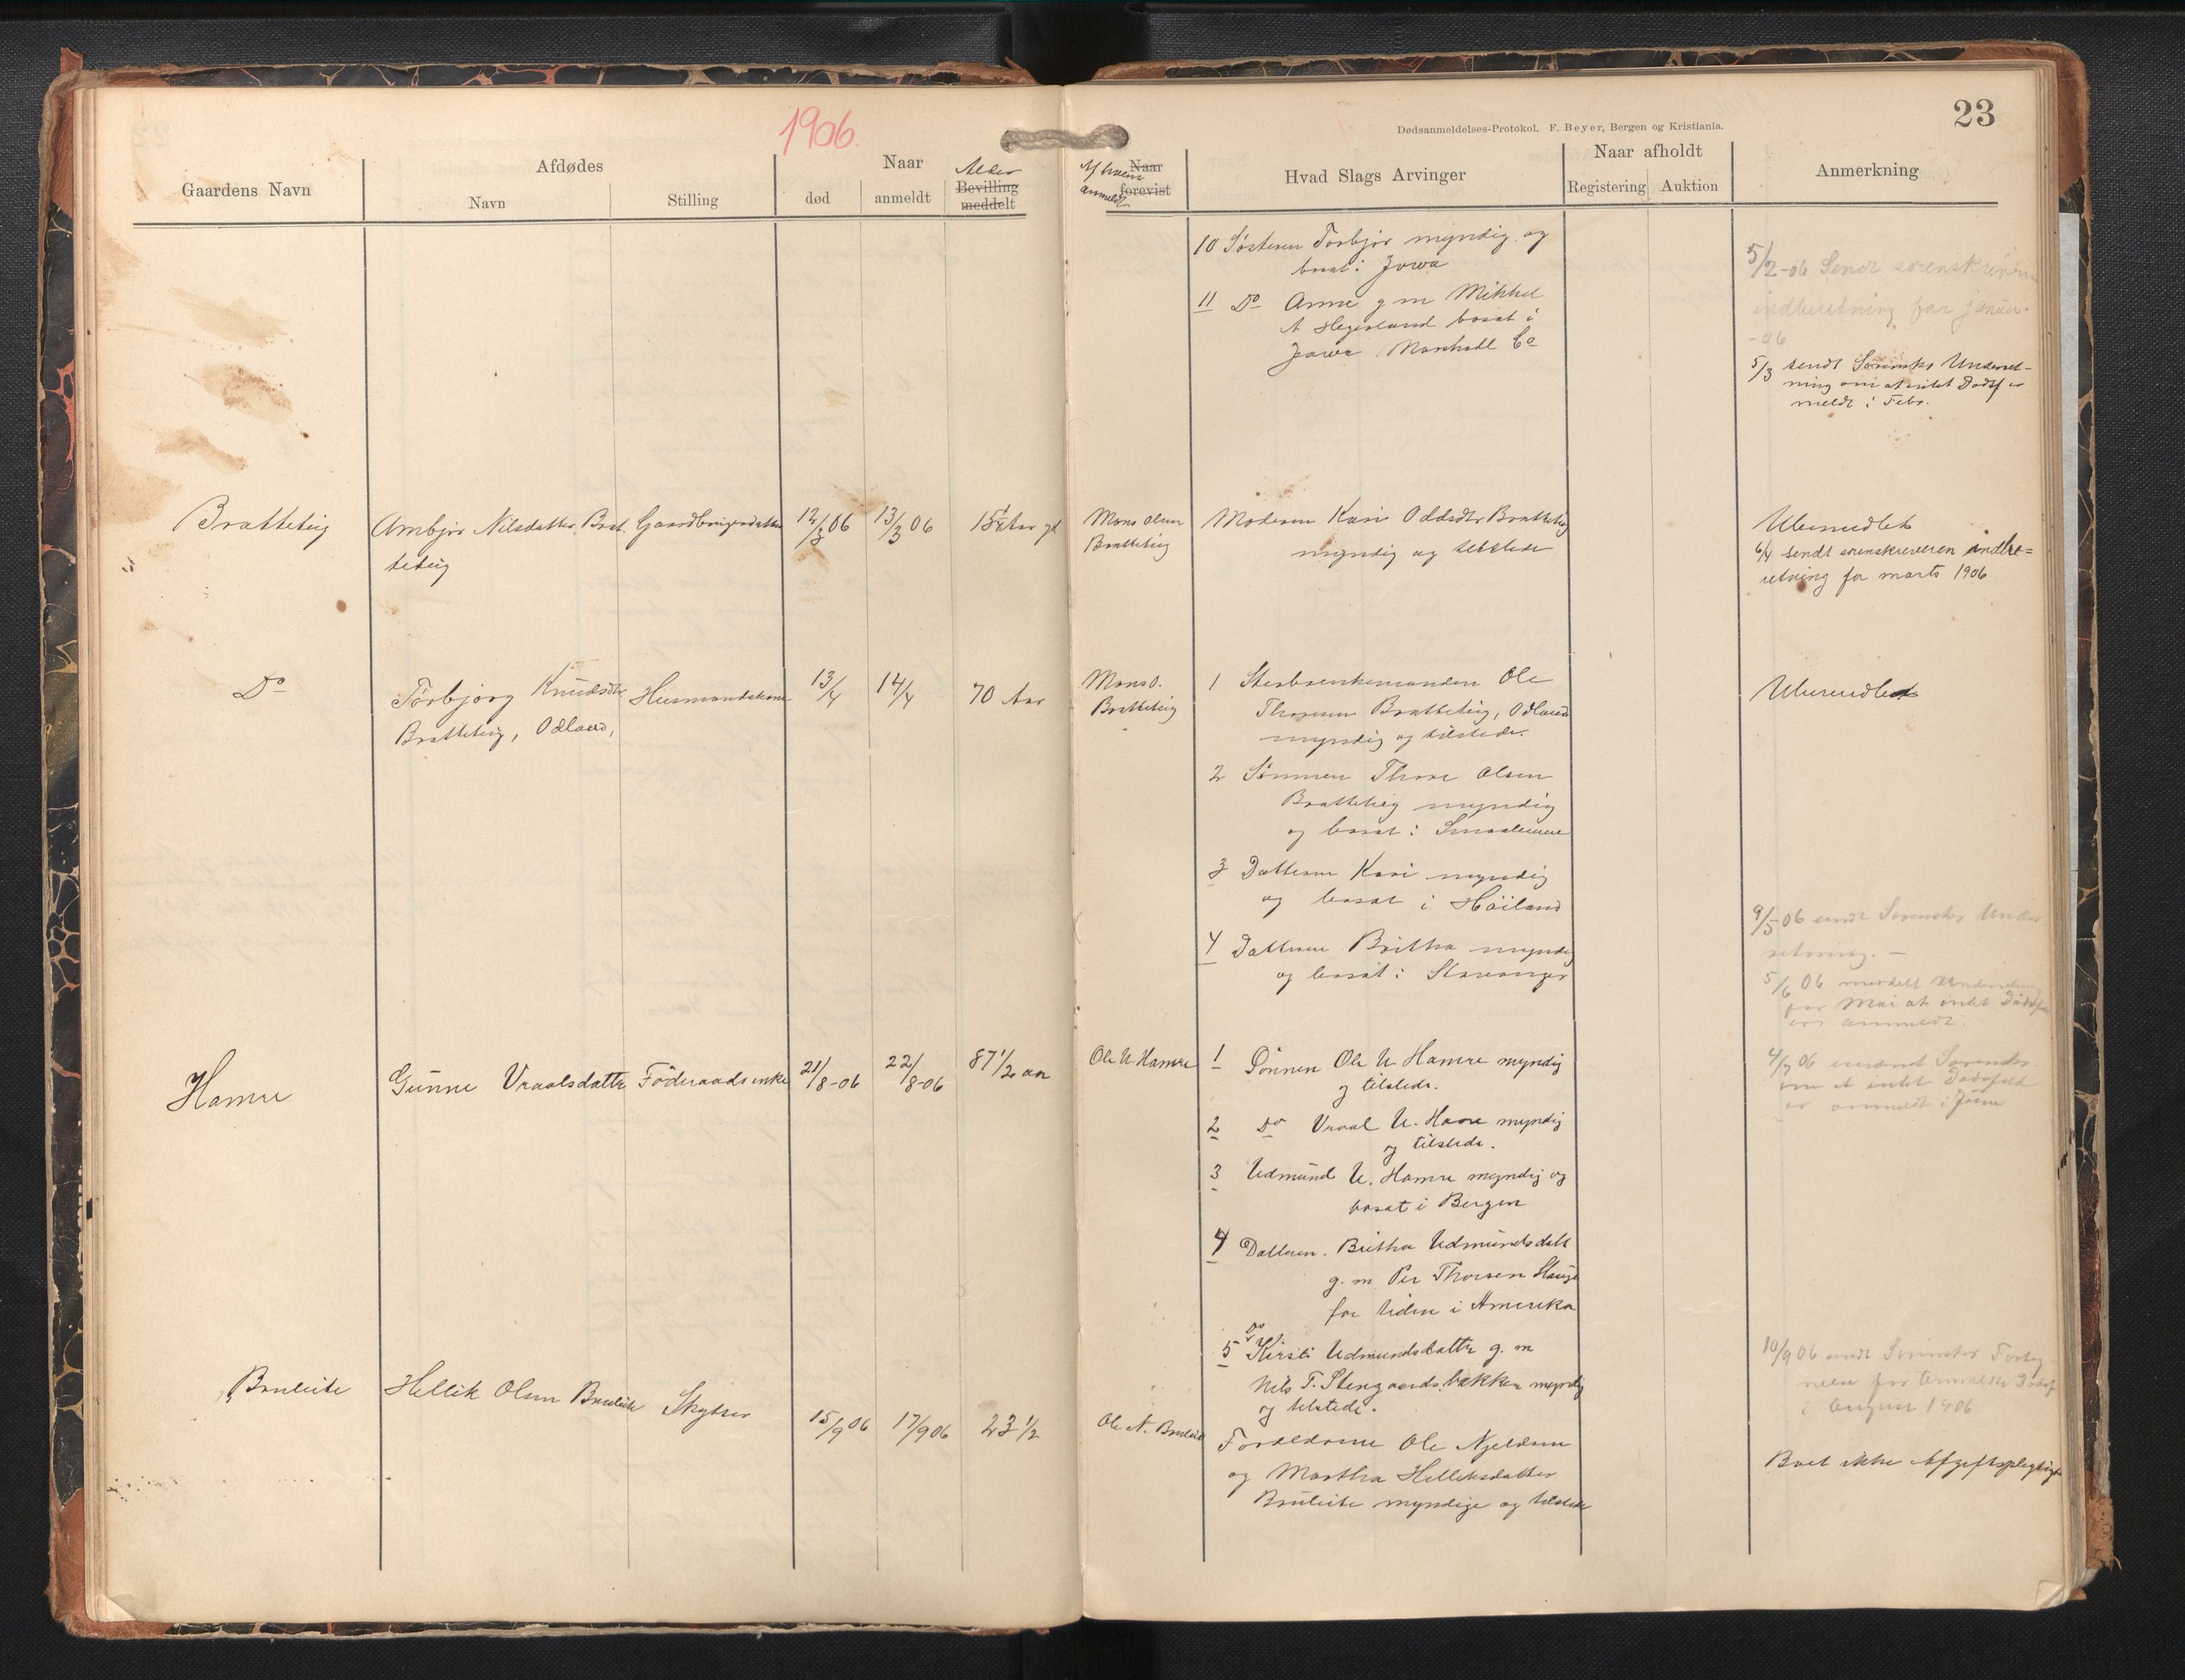 1906.
23
Dødsanmeldelses-Protokol. F. Beyer, Bergen og Kristiania.
Gaardens Navn
Afdødes
Navn
Stilling
Naar
død
anmeldt
Alder
Bevilling
meddelt
Af hvem
anmeldt
Naar
forevist
Hvad Slags Arvinger
Naar afholdt
Registering
Auktion
Anmerkning
10 Søsteren Torbjør myndig og
bosat i Jowa
11 Do Anna g m Mikkel
A Hegerland bosat i
Jowa Marshall Co
5/2-06 Sendt sorenskriveren
indberetning for januar
-06
5/3 sendt Sorensks Underret-
ning om at intet Dødsf er
meldt i Febr.
Bratteteig
Ambjør Nilsdatter Brat-
teteig
Gaardbrugerdatter
12/3 06
13/3 06
Aar gl
Mons Olsen
Bratteteig
Moderen Kari Oddsdtr Bratteteig
myndig og tilstede
Ubemidlet
6/4 sendt sorenskriveren indbe=
retning for marts 1906
Do
Torbjørg Knudsdtr
Bratteteig, Odland,
Husmandskone
13/4
14/4
70 Aar
Mons O.
Bratteteig
1 Sterbsenkemanden Ole
Thoresen Bratteteig, Odland
myndig og tilstede.
2 Sønnen Thore Olsen
Bratteteig myndig
og bosat i Smaalenene
3 Datteren Kari myndig
og bosat i Høiland
4 Datteren Britha myndig
og bosat i Stavanger
Ubemidlet
9/5-06 sendt Sorensks Under
retning. -
5/6 06 meddelt Underretning
for Mai at intet Dødsf
er anmeldt.
Hamre
Gunne Vraalsdattr
Föderaadsenke
21/8-06
22/8-06
87 1/2 aar
Ole U Hamre
1 Sönnen Ole U Hamre myndig
og tilstede.
2 Do Vraal U. Hamre myndig
og tilstede.
3 Udmund U. Hamre myndig og
bosat i Bergen
4 Datteren. Britha Udmundsdatt
g. m Per Thorsen Hauge
for tiden i Amerika
5 Do Kirsti Udmundsdattr g. m
Nils T. Stengaardsbakken myndig
og tilstede.
4/7 06
om at intet Dødsfald
er anmeldt i Juni
Bruleite
Hellik Olsen Bruleite
15/9 06
17/9 06
23 1/2
Ole N. Bruleite
Forældrene Ole Njeldsen
og Martha Helleksdatter
Bruleite myndige og tilstede
10/9 06 sendt Sorensks
for Anmeldte Dødsf
i August 1906
Boet ikke Afgiftspligtigt